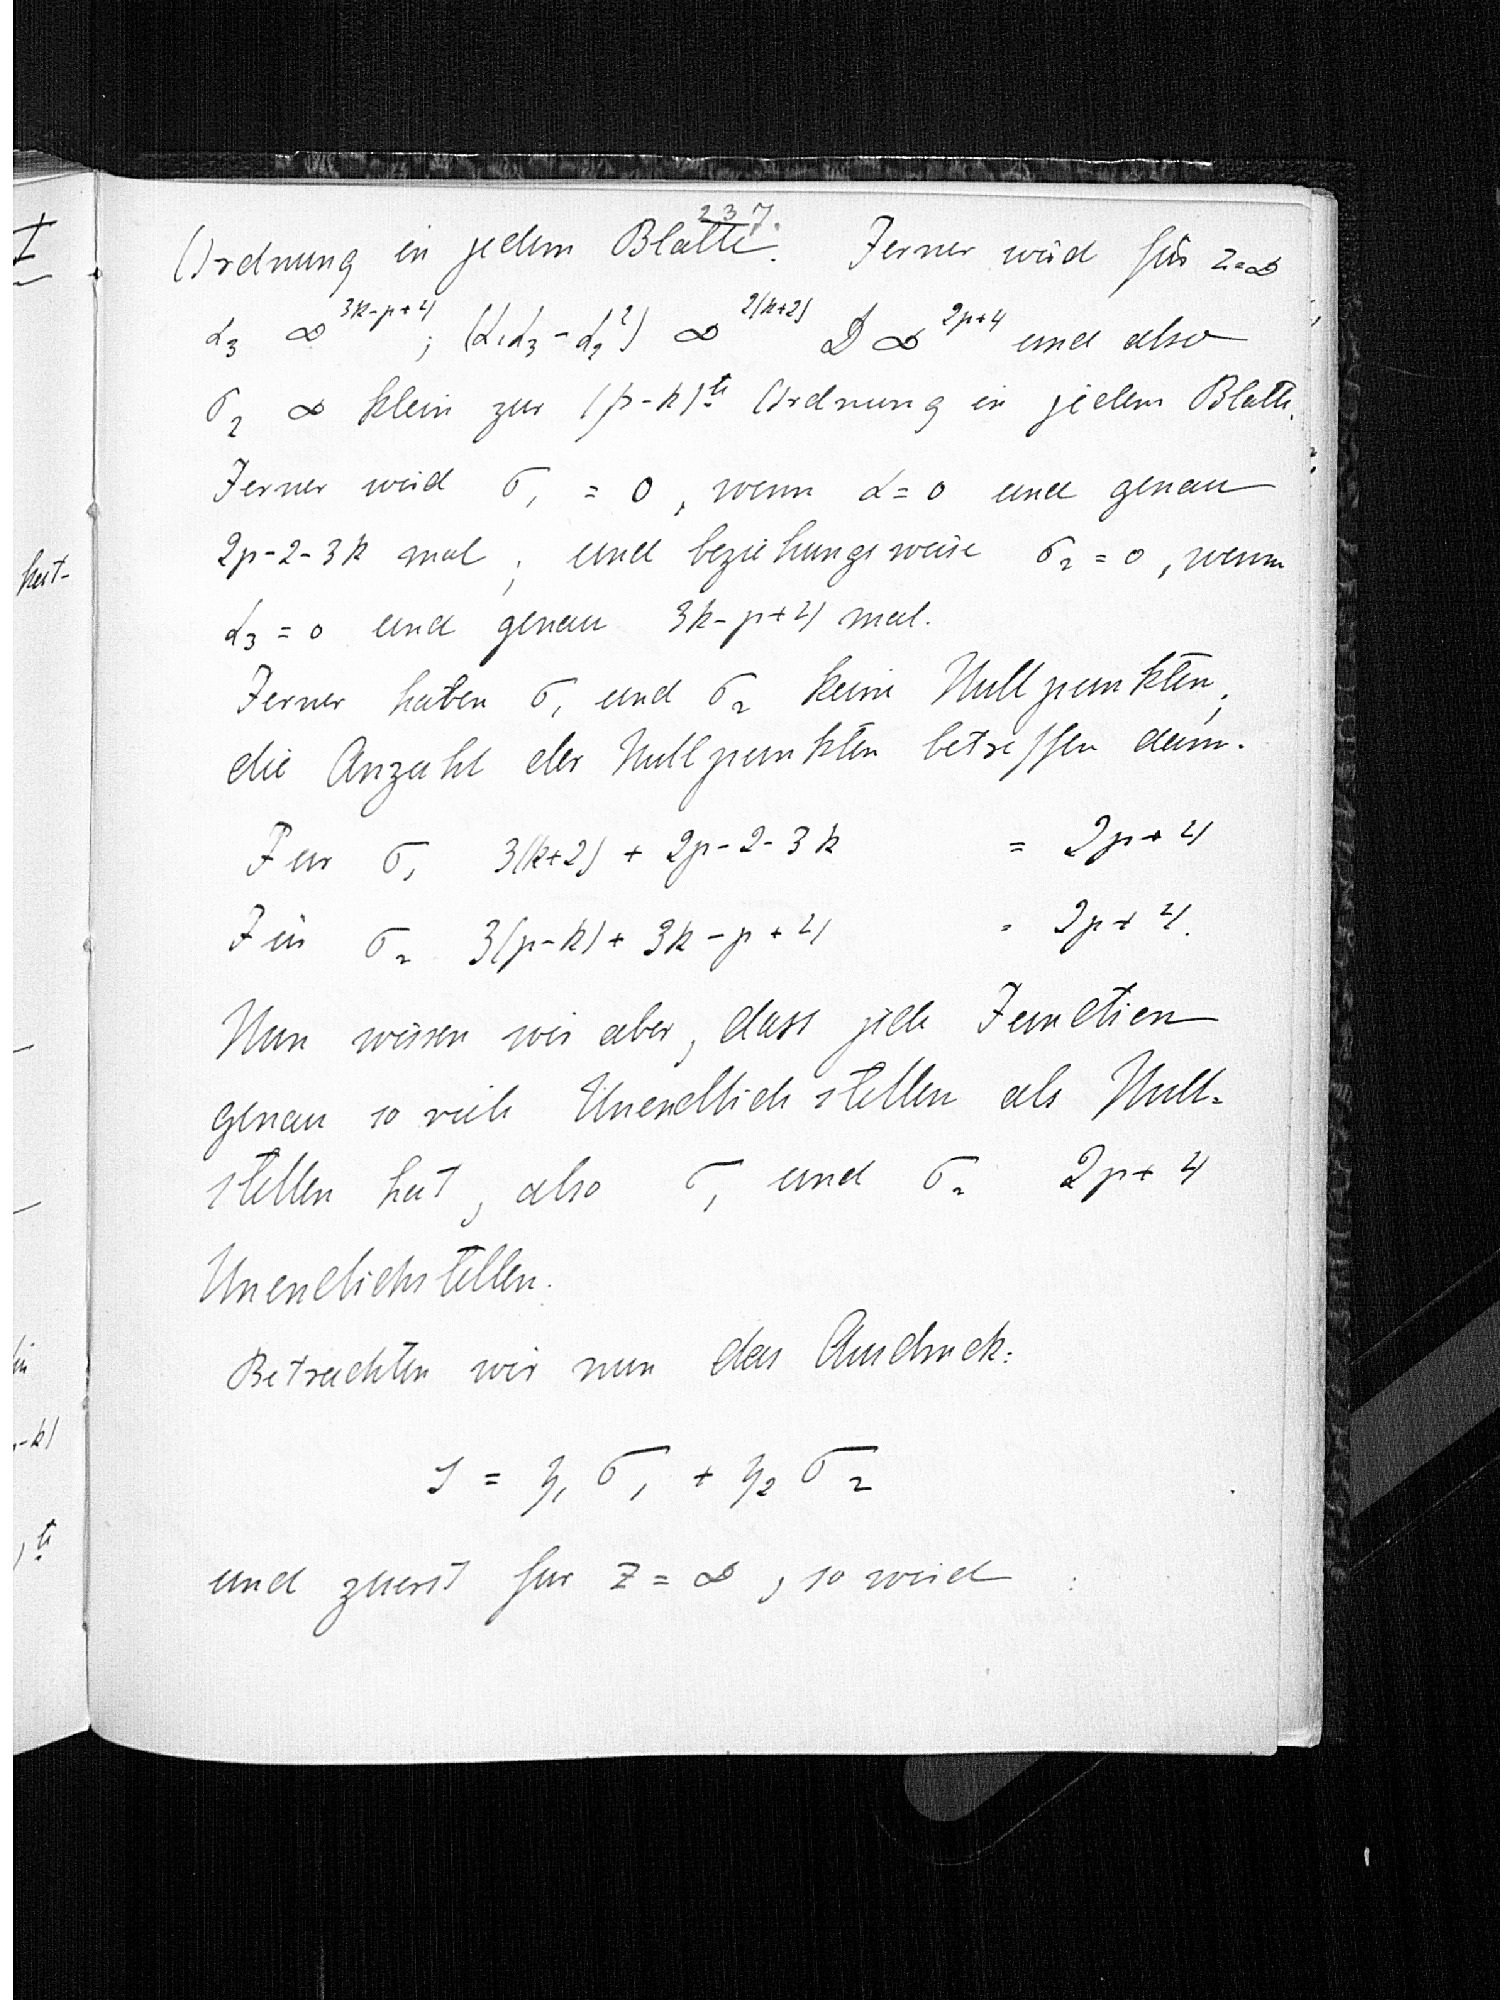 237.
Ordnung in jedem Blatte. Ferner wird für z=∞
α₃ ∞^{3k-p+4}; (α₁α₃-α₂²) ∞^{2(k+2)} D ∞^{2p+4} und also
σ₂ ∞ klein zur (p-k)^{te} Ordnung in jedem Blatte.
Ferner wird σ₁ = 0, wenn α=0 und genau
2p-2-3k mal; und beziehungsweise σ₂=0, wenn
α₃=0 und genau 3k-p+4 mal.
Ferner haben σ₁ und σ₂ keine Nullpunkten,
die Anzahl der Nullpunkten betreffen dann.
Fur σ₁ 3(k+2) + 2p-2-3k = 2p+4
Für σ₂ 3(p-k) + 3k-p+4 = 2p+4.
Nun wissen wir aber, dass jede Function
genau so viele Unendlichstellen als Null-
stellen hat, also σ₁ und σ₂ 2p+4
Unendlichstellen.
Betrachten wir nun das Ausdruck:
s = y₁ σ₁ + y₂ σ₂
und zuerst fur z=∞, so wird :
hat-
-k)
te